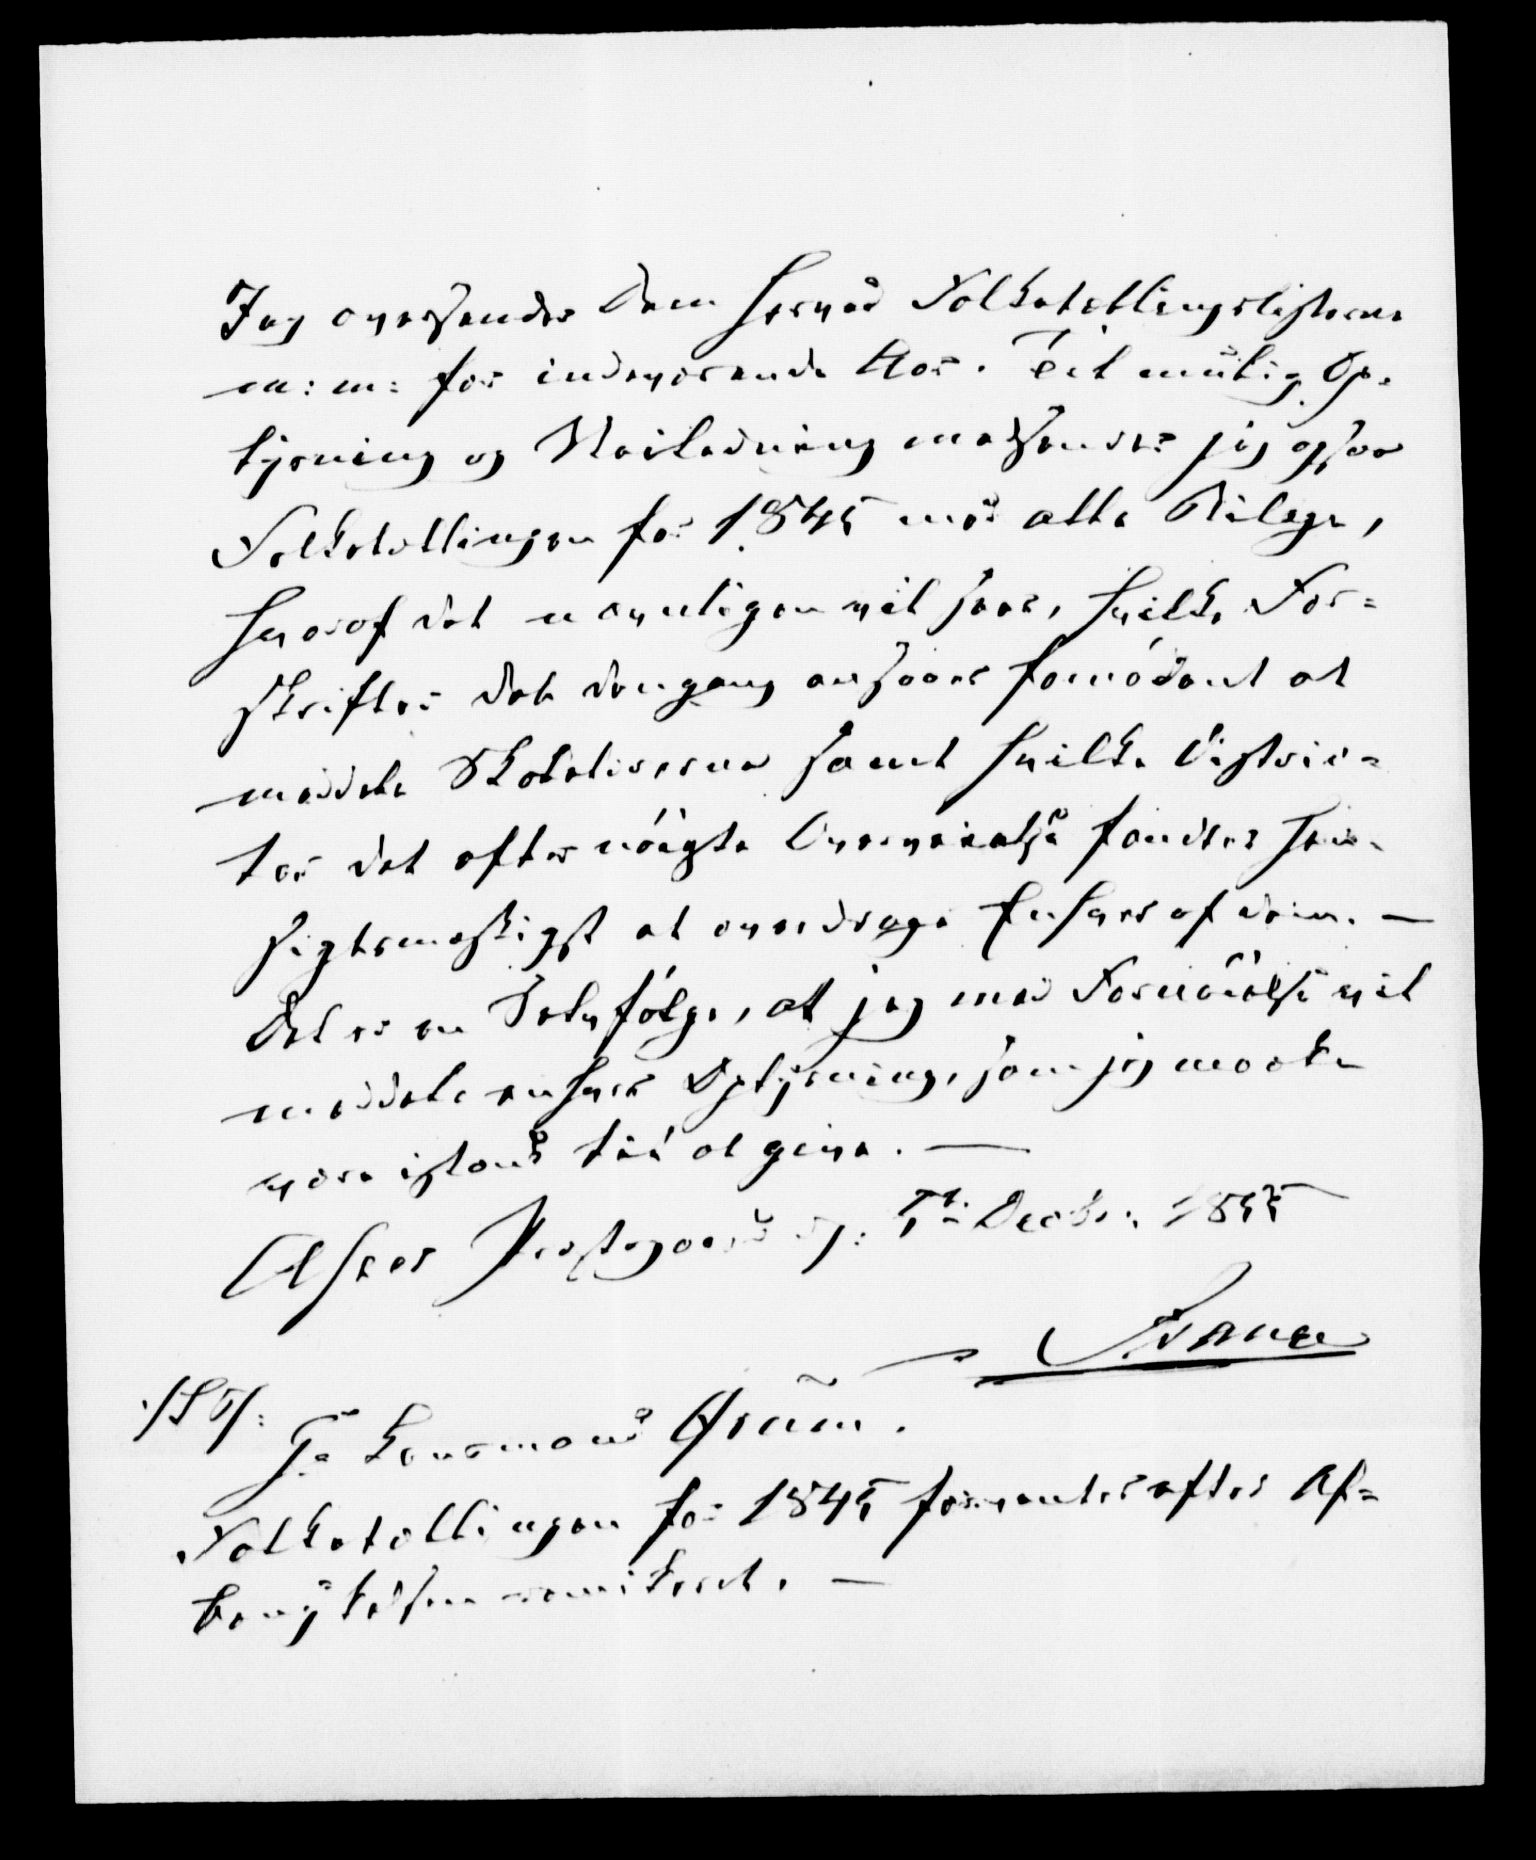 Jeg oversender Dem herved Folketællingslisterne
m: m: for indeværende Aar. Til mulig Op-
lysning og Veiledning medsendes jeg ogsaa
Folketællingen for 1845 med alle Bilage,
hvoraf det navnligen vil sees, hvilke For=
skrifter det dengang ansaaes fornödent at
meddele Skoleliserne samt hvilke Distric=
ter det efter nöigste Overveielse fandtes hen-
sigtsmæssigst at overdrage Enhver af dem. —
Det er en Selvfölge, at jeg med Fornöielse vil
meddele enhver Oplysning, som jeg maatte
være istand til at give. —
Asker Præstegaard d: 5te Decbr: 1855
./S T/:
Hr Lensmand Gram.
Folketællingen for 1845 forventes efter Af=
benyttelsen remitteret. —